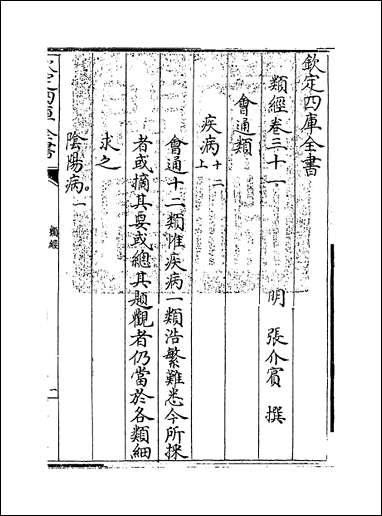 欽定四庫全書
類經卷三十一
明 張介賓 撰
會通類
疾病上十二
會通十二類惟疾病一類浩繁難悉今所採
者或摘其要或總其題觀者仍當於各類細
求之
陰陽病。一
欽定四庫全書
類經
一